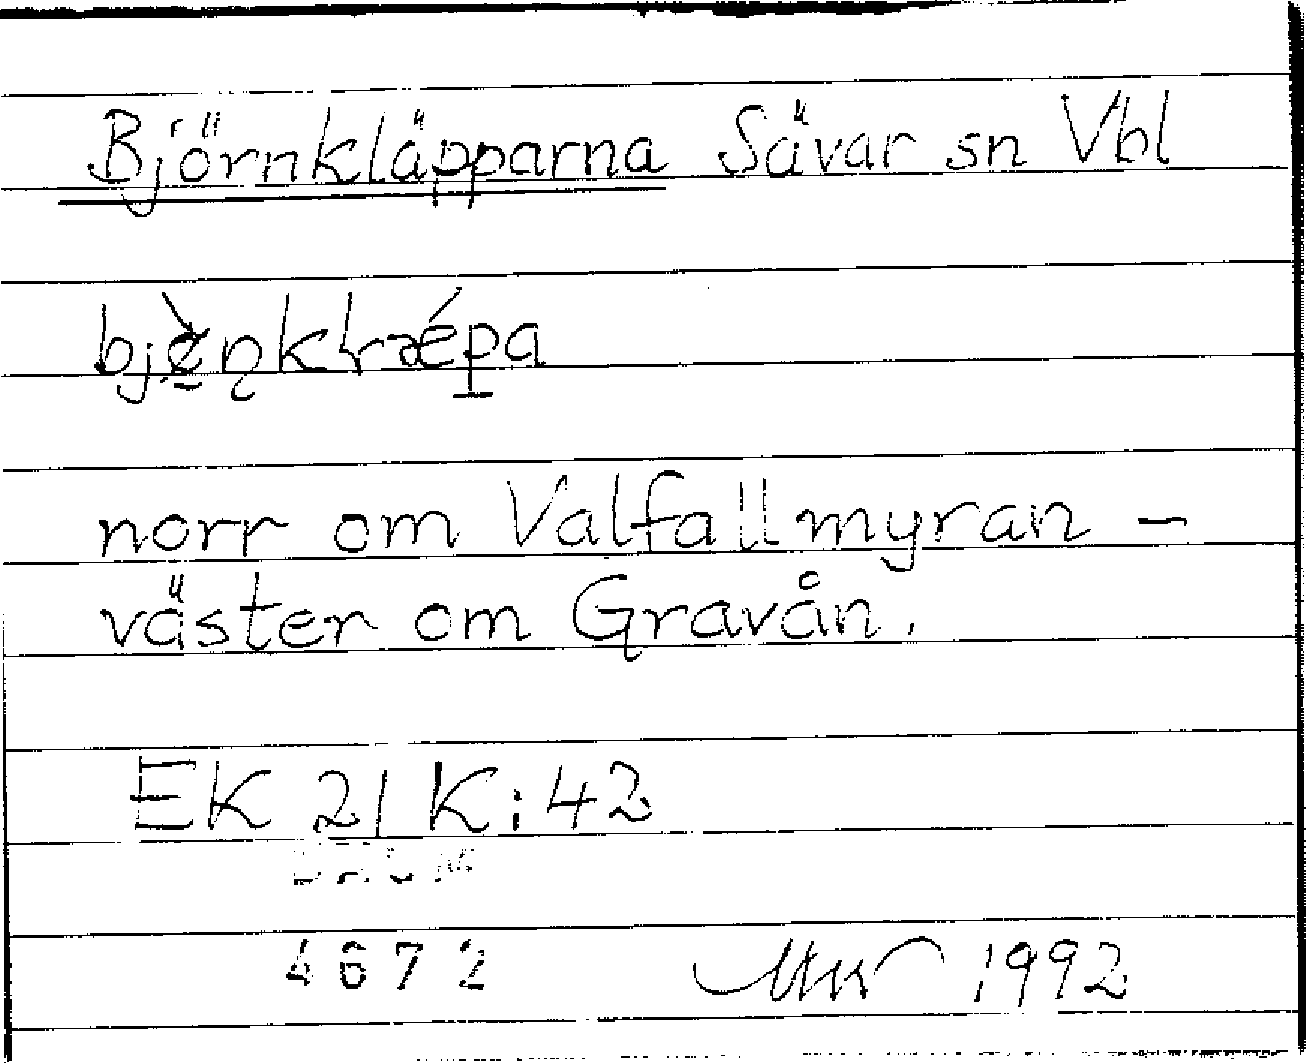 Björnkläpparna Sävar sn Vbl
norr om Valfallmyran –
väster om Gravån.
EK 21 K:42
DAUM
4672 1992